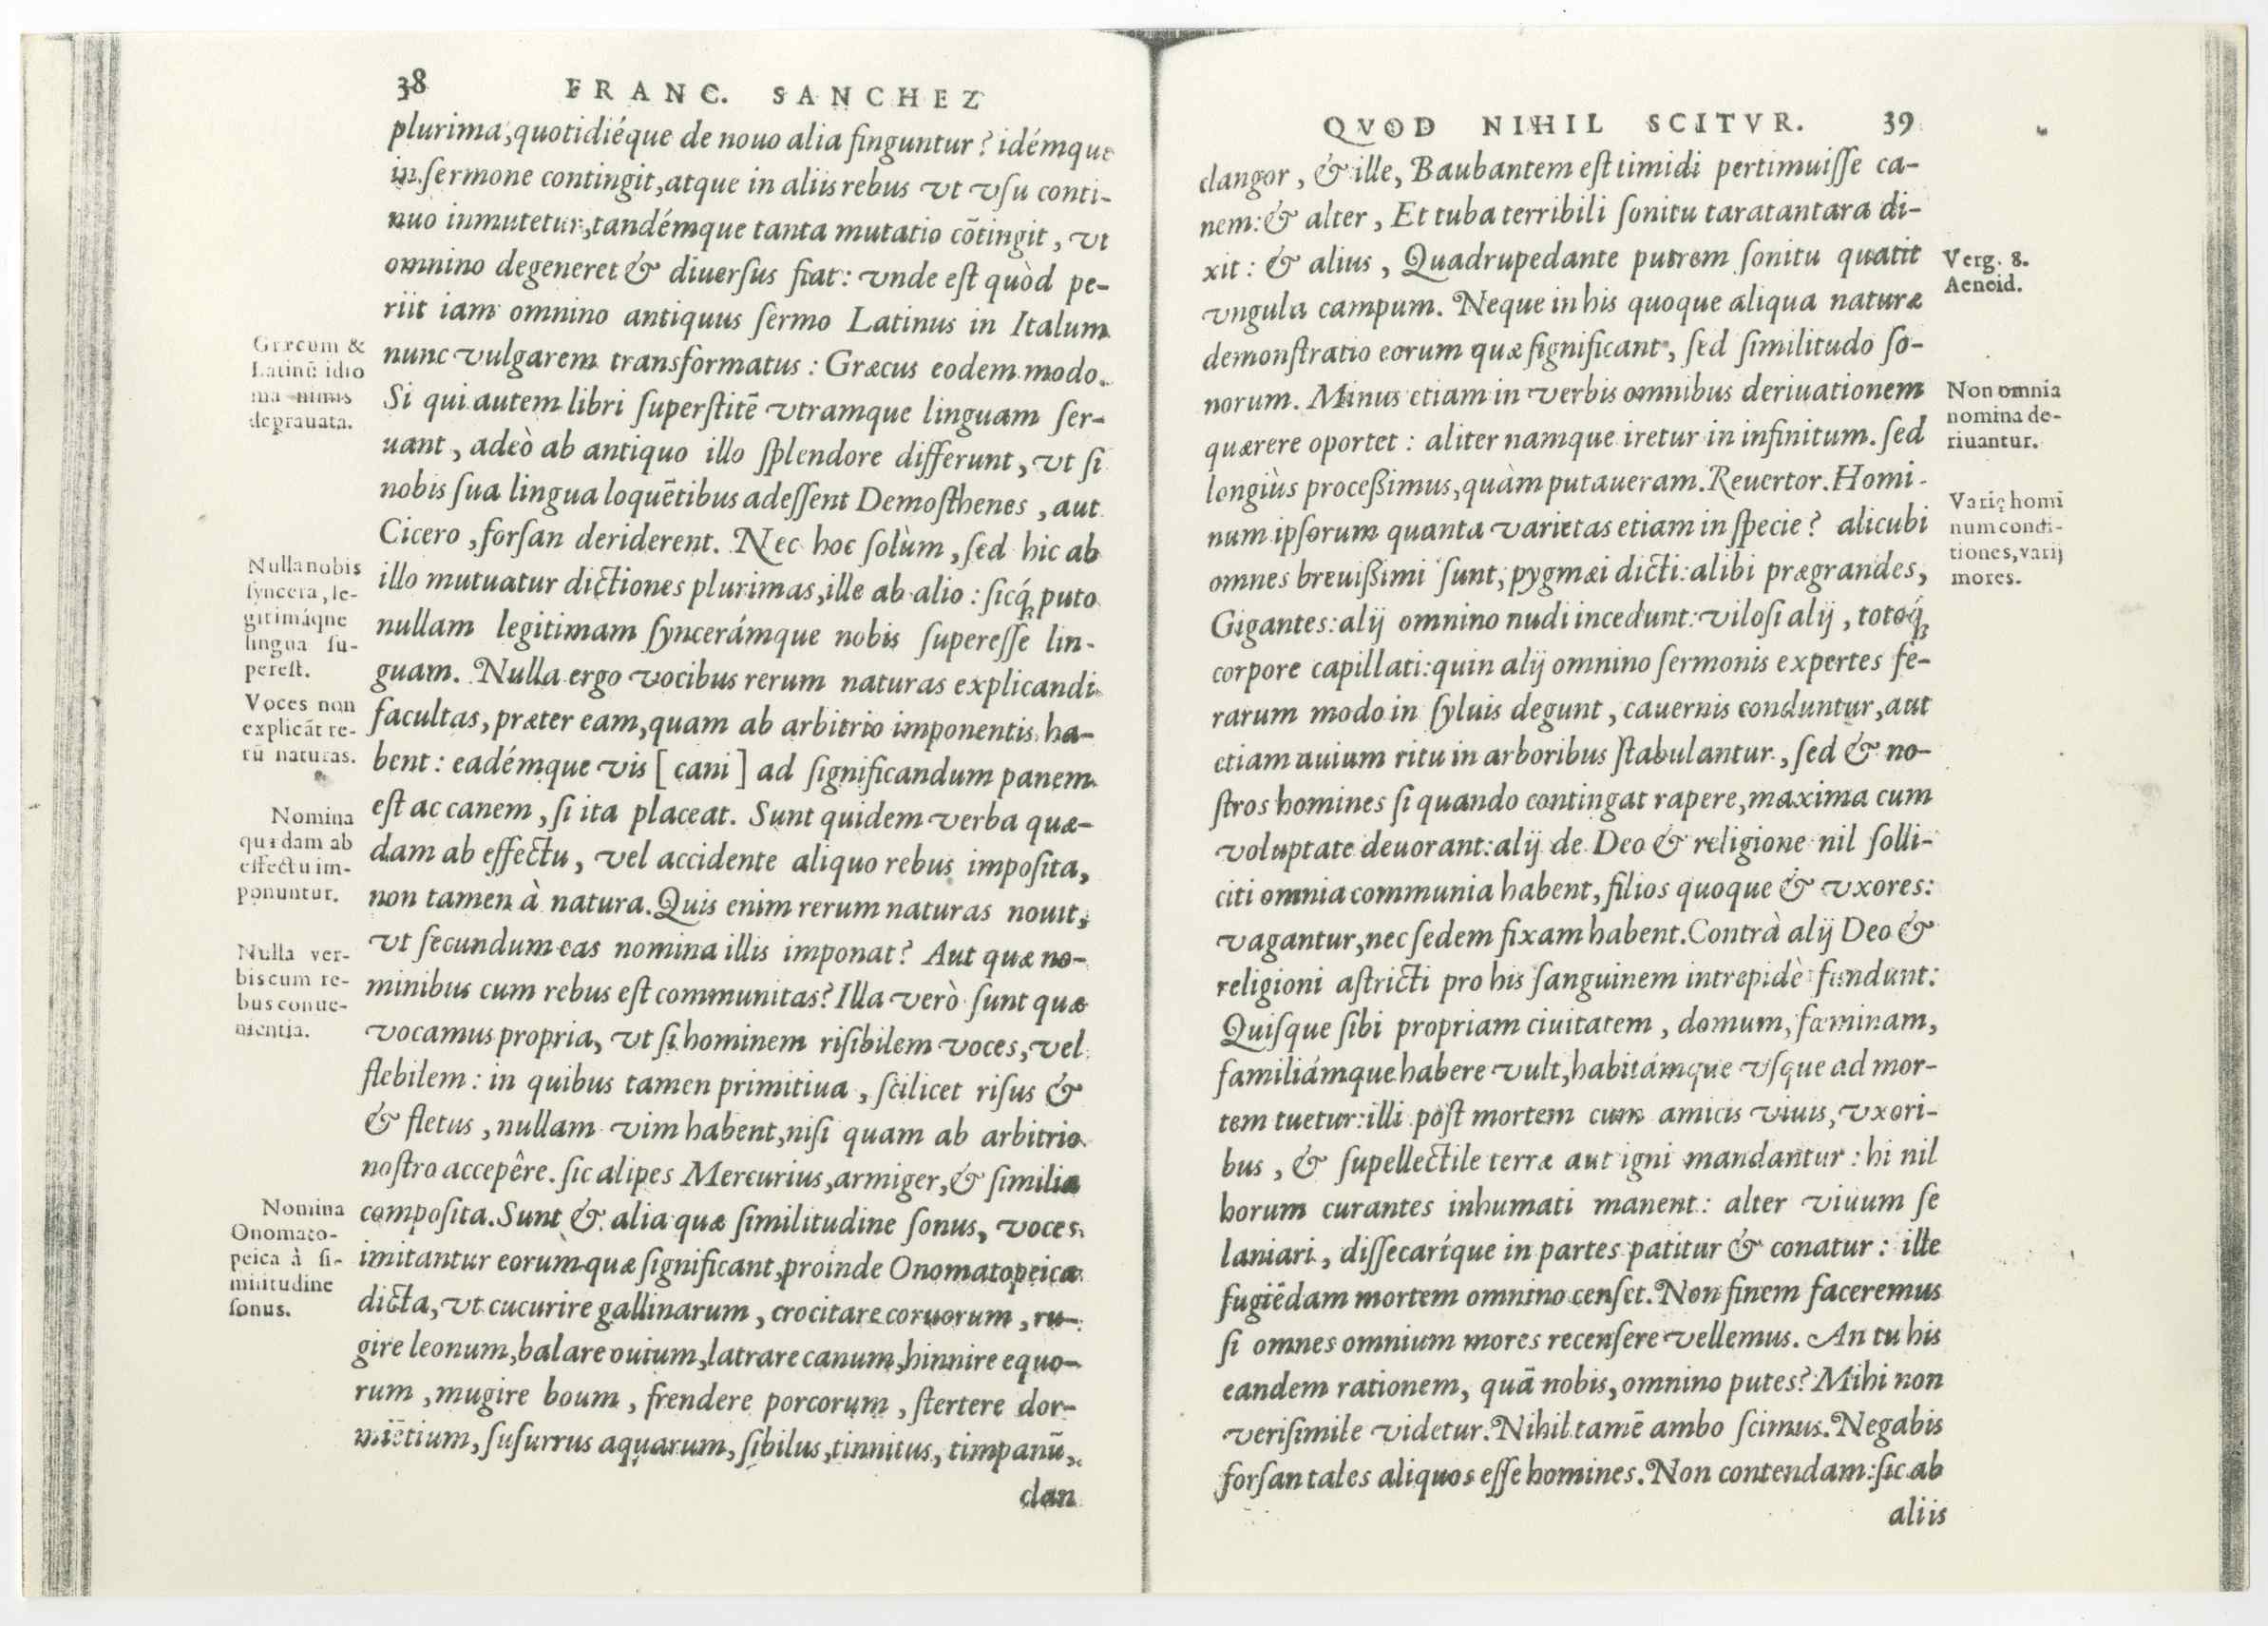 38 FRANC. SANCHEZ
plurima, quotidiéque de nouo alia finguntur? idémque
in sermone contingit, atque in aliis rebus vt vsu conti-
nuò inmutetur, tandémque tanta mutatio cõtingit, vt
omnino degeneret & diuersus fiat: vnde est quòd pe-
riit iam omnino antiquus sermo Latinus in Italum
nunc vulgarem transformatus: Græcus eodem modo.
Si qui autem libri superstitẽ vtramque linguam ser-
uant, adeò ab antiquo illo splendore differunt, vt si
nobis sua lingua loquẽtibus adessent Demosthenes, aut
Cicero, forsan deriderent. Nec hoc solùm, sed hic ab
illo mutuatur dictiones plurimas, ille ab alio: sicq́; puto
nullam legitimam syncerámque nobis superesse lin-
guam. Nulla ergo vocibus rerum naturas explicandi
facultas, præter eam, quam ab arbitrio imponentis ha-
bent: eadémque vis [cani] ad significandum panem
est ac canem, si ita placeat. Sunt quidem verba quæ-
dam ab effectu, vel accidente aliquo rebus imposita,
non tamen à natura. Quis enim rerum naturas nouit,
vt secundum eas nomina illis imponat? Aut quæ no-
minibus cum rebus est communitas? Illa verò sunt quæ
vocamus propria, vt si hominem risibilem voces, vel
flebilem: in quibus tamen primitiua, scilicet risus &
& fletus, nullam vim habent, nisi quam ab arbitrio
nostro accepêre. sic alipes Mercurius, armiger, & similia
composita. Sunt & alia quæ similitudine sonus, voces
imitantur eorùm quæ significant, proinde Onomatopeica
dicta, vt cucurire gallinarum, crocitare coruorum, ru-
gire leonum, balare ouium, latrare canum, hinnire equo-
rum, mugire boum, frendere porcorum, stertere dor-
miẽtium, susurrus aquarum, sibilus, tinnitus, timpanũ,
clan
Græcum &
Latinũ idio
ma nimis
deprauata.
Nulla nobis
syncera, le-
gitimáque
lingua su-
perest.
Voces non
explicãt re-
rũ naturas.
Nomina
quædam ab
effectu im-
ponuntur.
Nulla ver-
bis cum re-
bus conue-
nientia.
Nomina
Onomato-
peica à si-
militudine
sonus.
QVOD NIHIL SCITVR. 39
clangor, & ille, Baubantem est timidi pertimuisse ca-
nem: & alter, Et tuba terribili sonitu taratantara di-
xit: & alius, Quadrupedante putrem sonitu quatit
vngula campum. Neque in his quoque aliqua naturæ
demonstratio eorum quæ significant, sed similitudo so-
norum. Minus etiam in verbis omnibus deriuationem
quærere oportet: aliter namque iretur in infinitum. sed
longiùs processimus, quàm putaueram. Reuertor. Homi-
num ipsorum quanta varietas etiam in specie? alicubi
omnes breuissimi sunt, pygmæi dicti: alibi prægrandes,
Gigantes: alij omnino nudi incedunt: vilosi alij, totoq́;
corpore capillati: quin alij omnino sermonis expertes fe-
rarum modo in syluis degunt, cauernis conduntur, aut
etiam auium ritu in arboribus stabulantur, sed & no-
stros homines si quando contingat rapere, maxima cum
voluptate deuorant: alij de Deo & religione nil solli-
citi omnia communia habent, filios quoque & vxores:
vagantur, nec sedem fixam habent. Contrà alij Deo &
religioni astricti pro his sanguinem intrepidè fundunt:
Quisque sibi propriam ciuitatem, domum, fœminam,
familiámque habere vult, habitámque vsque ad mor-
tem tuetur: illi post mortem cum amicis viuis, vxori-
bus, & supellectile terræ aut igni mandantur: hi nil
horum curantes inhumati manent: alter viuum se
laniari, dissecaríque in partes patitur & conatur: ille
fugiẽdam mortem omnino censet. Non finem faceremus
si omnes omnium mores recensere vellemus. An tu his
eandem rationem, quã nobis, omnino putes? Mihi non
verisimile videtur. Nihil tamẽ ambo scimus. Negabis
forsan tales aliquos esse homines. Non contendam: sic ab
aliis
Verg. 8.
Aeneid.
Non omnia
nomina de-
riuantur.
Varię homi
num condi-
tiones, varij
mores.